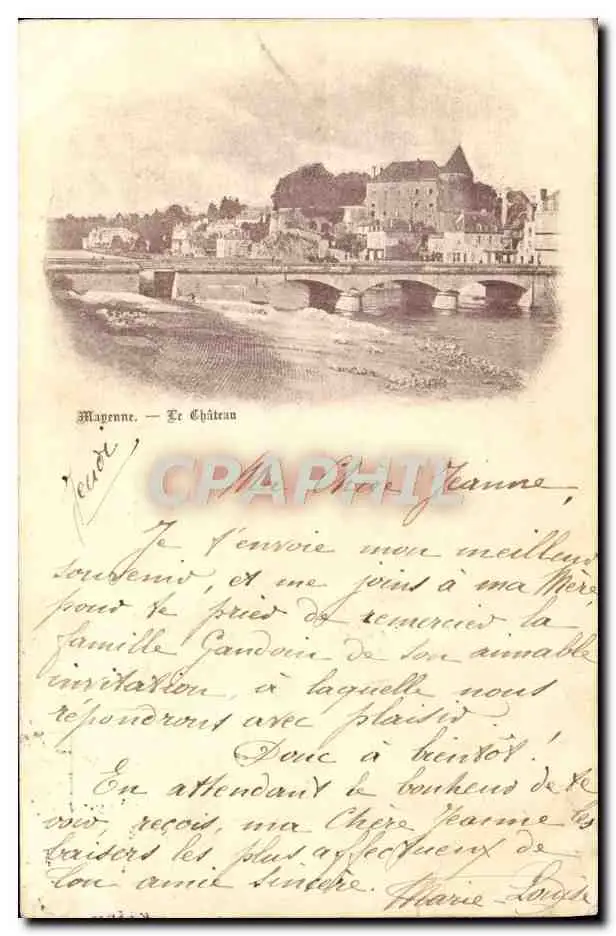 Mayenne. — Le Château
Jeudi
CAPHIL
Ma Chère Jeanne,
Je t'envoie mon meilleur
souvenir, et me joins à ma Mère,
pour te prier de remercier la
famille Gaudoin de son aimable
invitation, à laquelle nous
répondrons avec plaisir.
Donc à bientôt !
En attendant le bonheur de te
voir, reçois, ma Chère Jeanne les
baisers les plus affectueux de
ton amie sincère.
Marie-Louise